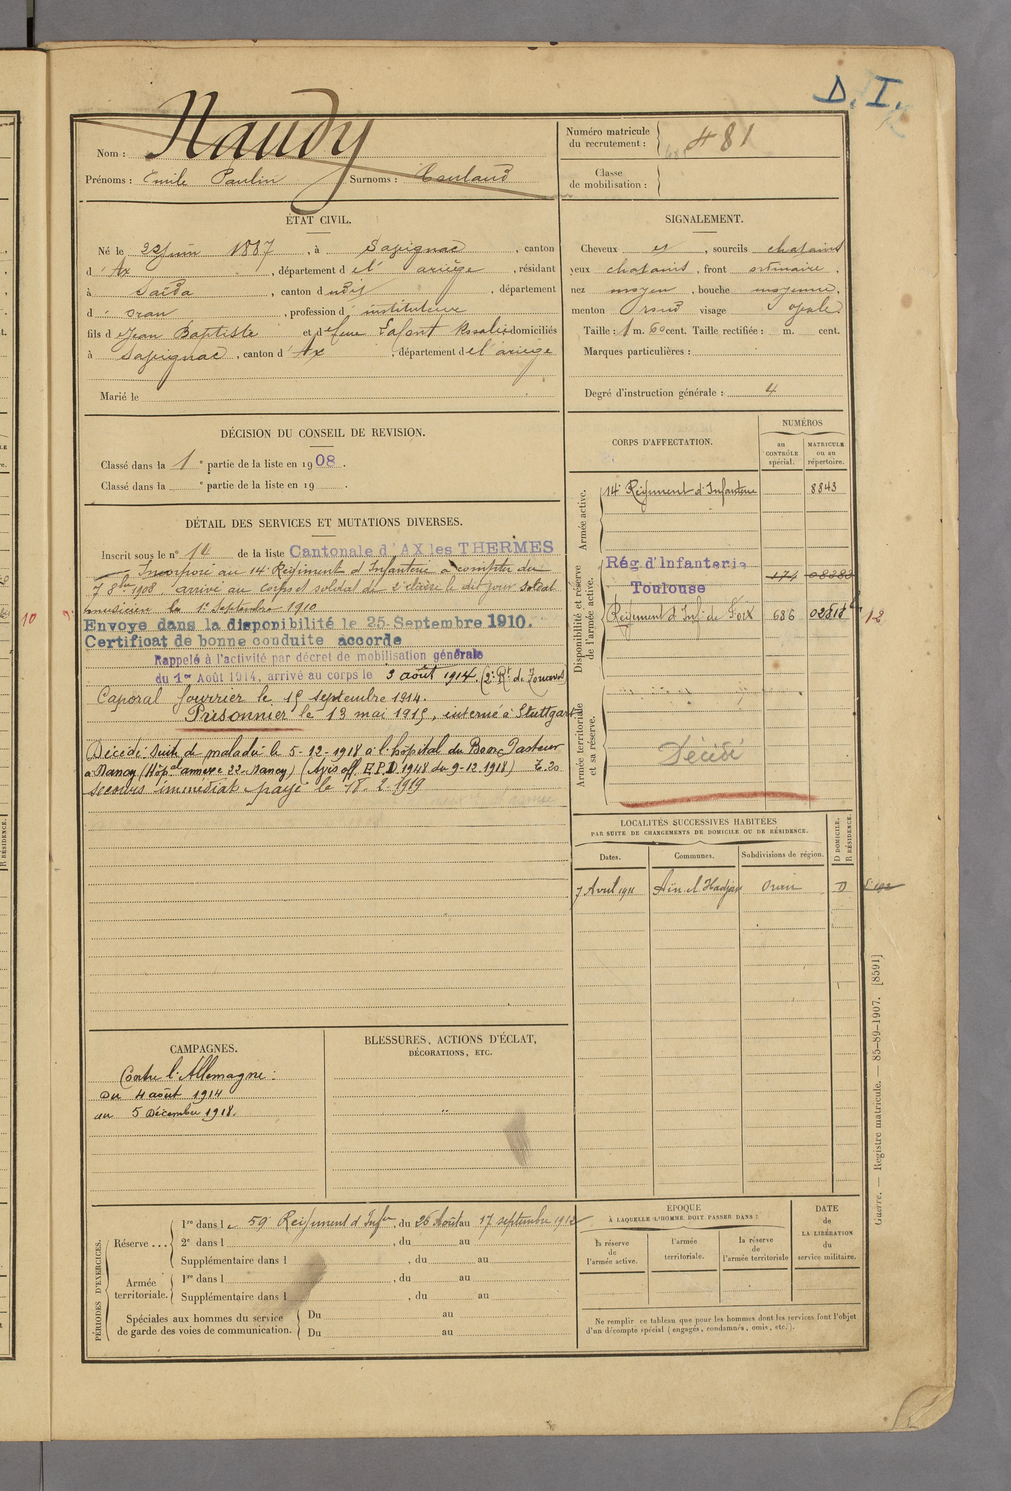 D. I.
Nom : Naudy
Prénoms : Emile Paulin Surnoms :
Numéro matricule du recrutement : 481
Classe de mobilisation :
ÉTAT CIVIL.
Né le 22 juin 1887, à Savignac, canton
d'Ax, département de l'ariège, résidant
à Saïda, canton dudit, département
d'oran, profession d'instituteur
fils de Jean Baptiste et de feue Lafont Rosalie domiciliés
à Savignac, canton d'Ax, département de l'ariège
Marié le
SIGNALEMENT.
Cheveux et, sourcils chatains
yeux chatains, front ordinaire,
nez moyen, bouche moyenne,
menton rond visage ovale
Taille : 1 m. 60 cent. Taille rectifiée : m. cent.
Marques particulières :
Degré d'instruction générale : 4
DÉCISION DU CONSEIL DE REVISION.
Classé dans la 1e partie de la liste en 1908.
Classé dans la e partie de la liste en 19 .
DÉTAIL DES SERVICES ET MUTATIONS DIVERSES.
Inscrit sous le n° 14 de la liste Cantonale d'AX les THERMES
Incorporé au 14e Régiment d'Infanterie à compter du
7 8bre 1908, arrivé au corps et soldat de 2e classe le dit jour Soldat
musicien le 1er Septembre 1910
Envoyé dans la disponibilité le 25 Septembre 1910.
Certificat de bonne conduite accordé
Rappelé à l'activité par décret de mobilisation générale
du 1er Août 1914, arrivé au corps le 3 août 1914. (2e Rt de Zouaves)
Caporal fourrier le 15 septembre 1914.
Prisonnier le 13 mai 1915, interné à Stuttgart
Décédé suite de maladie le 5-12-1918 à l'hôpital du Bon Pasteur
à Nancy (Hôpal annexe 22 Nancy) (Avis off. E.P.D. 1948 du 9-12-1918)
Secours immédiat payé le 18-2-1919
CORPS D'AFFECTATION.
NUMÉROS
au CONTRÔLE spécial.
MATRICULE ou au répertoire.
Armée active.
14e Régiment d'Infanterie 8843
Disponibilité et réserve de l'armée active.
Rég. d'Infanterie
Toulouse 174 08383
Régiment d'Inf. de Foix 686 02818 12
Armée territoriale et sa réserve.
Décédé
LOCALITÉS SUCCESSIVES HABITÉES
PAR SUITE DE CHANGEMENTS DE DOMICILE OU DE RÉSIDENCE.
D DOMICILE.
R RÉSIDENCE.
Dates. Communes. Subdivisions de région.
7 Avril 1911 Aïn el Hadjar Oran D
CAMPAGNES.
Contre l'Allemagne :
Du 4 août 1914
au 5 Décembre 1918.
BLESSURES, ACTIONS D'ÉCLAT,
DÉCORATIONS, ETC.
PÉRIODES D'EXERCICES.
Réserve ...
1re dans le 59e Régiment d'Infie, du 26 Août au 17 septembre 1912
2e dans l , du au
Supplémentaire dans l , du au
Armée territoriale.
1re dans l , du au
Supplémentaire dans l , du au
Spéciales aux hommes du service de garde des voies de communication.
Du au
Du au
EPOQUE
À LAQUELLE L'HOMME DOIT PASSER DANS :
la réserve de l'armée active.
l'armée territoriale.
la réserve de l'armée territoriale
DATE de LA LIBÉRATION du service militaire.
Ne remplir ce tableau que pour les hommes dont les services font l'objet
d'un décompte spécial (engagés, condamnés, omis, etc.).
Guerre. — Registre matricule. — 85-89-1907. [8591]
10
R RÉSIDENCE.